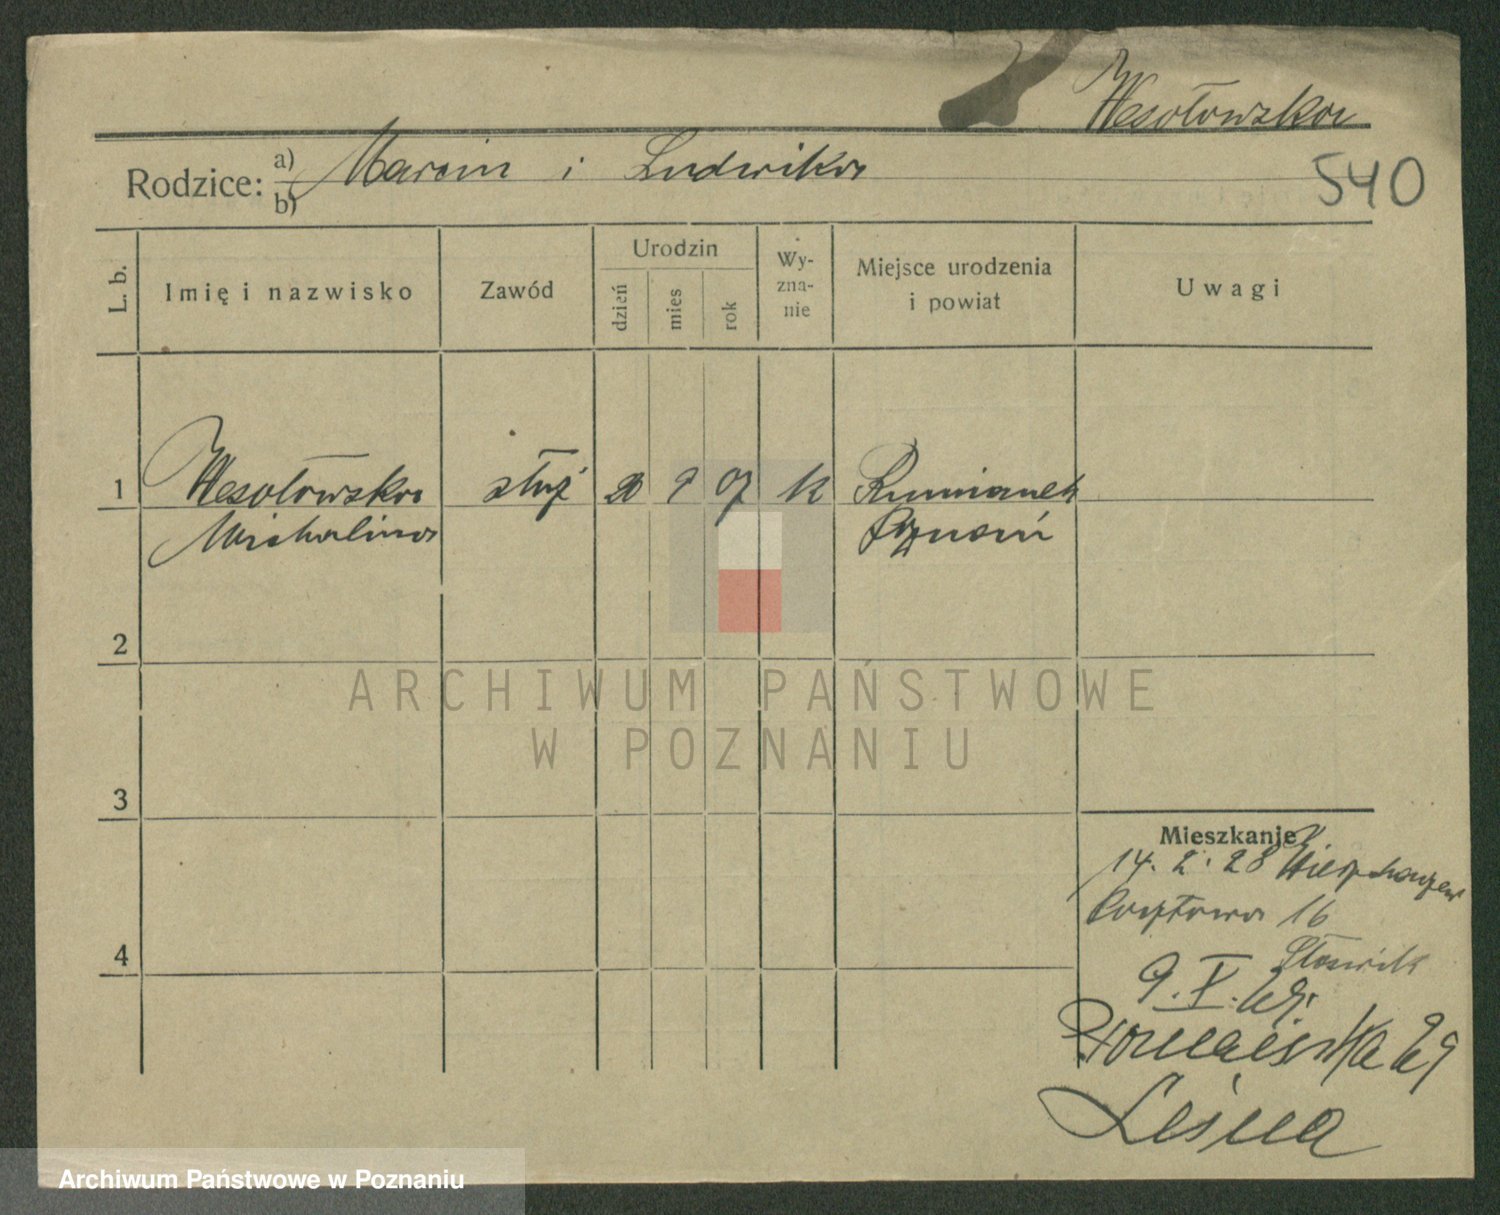 Wesołowska
Rodzice: a) Marcin i Ludwika
b)
540
L. b.
Imię i nazwisko
Zawód
Urodzin
dzień
mies
rok
Wy-
zna-
nie
Miejsce urodzenia
i powiat
Uwagi
1 Wesołowska służ 20 9 07 k Rumianek
Michalina Poznań
2
3
4
Mieszkanie
14. 2. 28
16
9. V. 29.
29
Leśna
ARCHIWUM PAŃSTWOWE
W POZNANIU
Archiwum Państwowe w Poznaniu